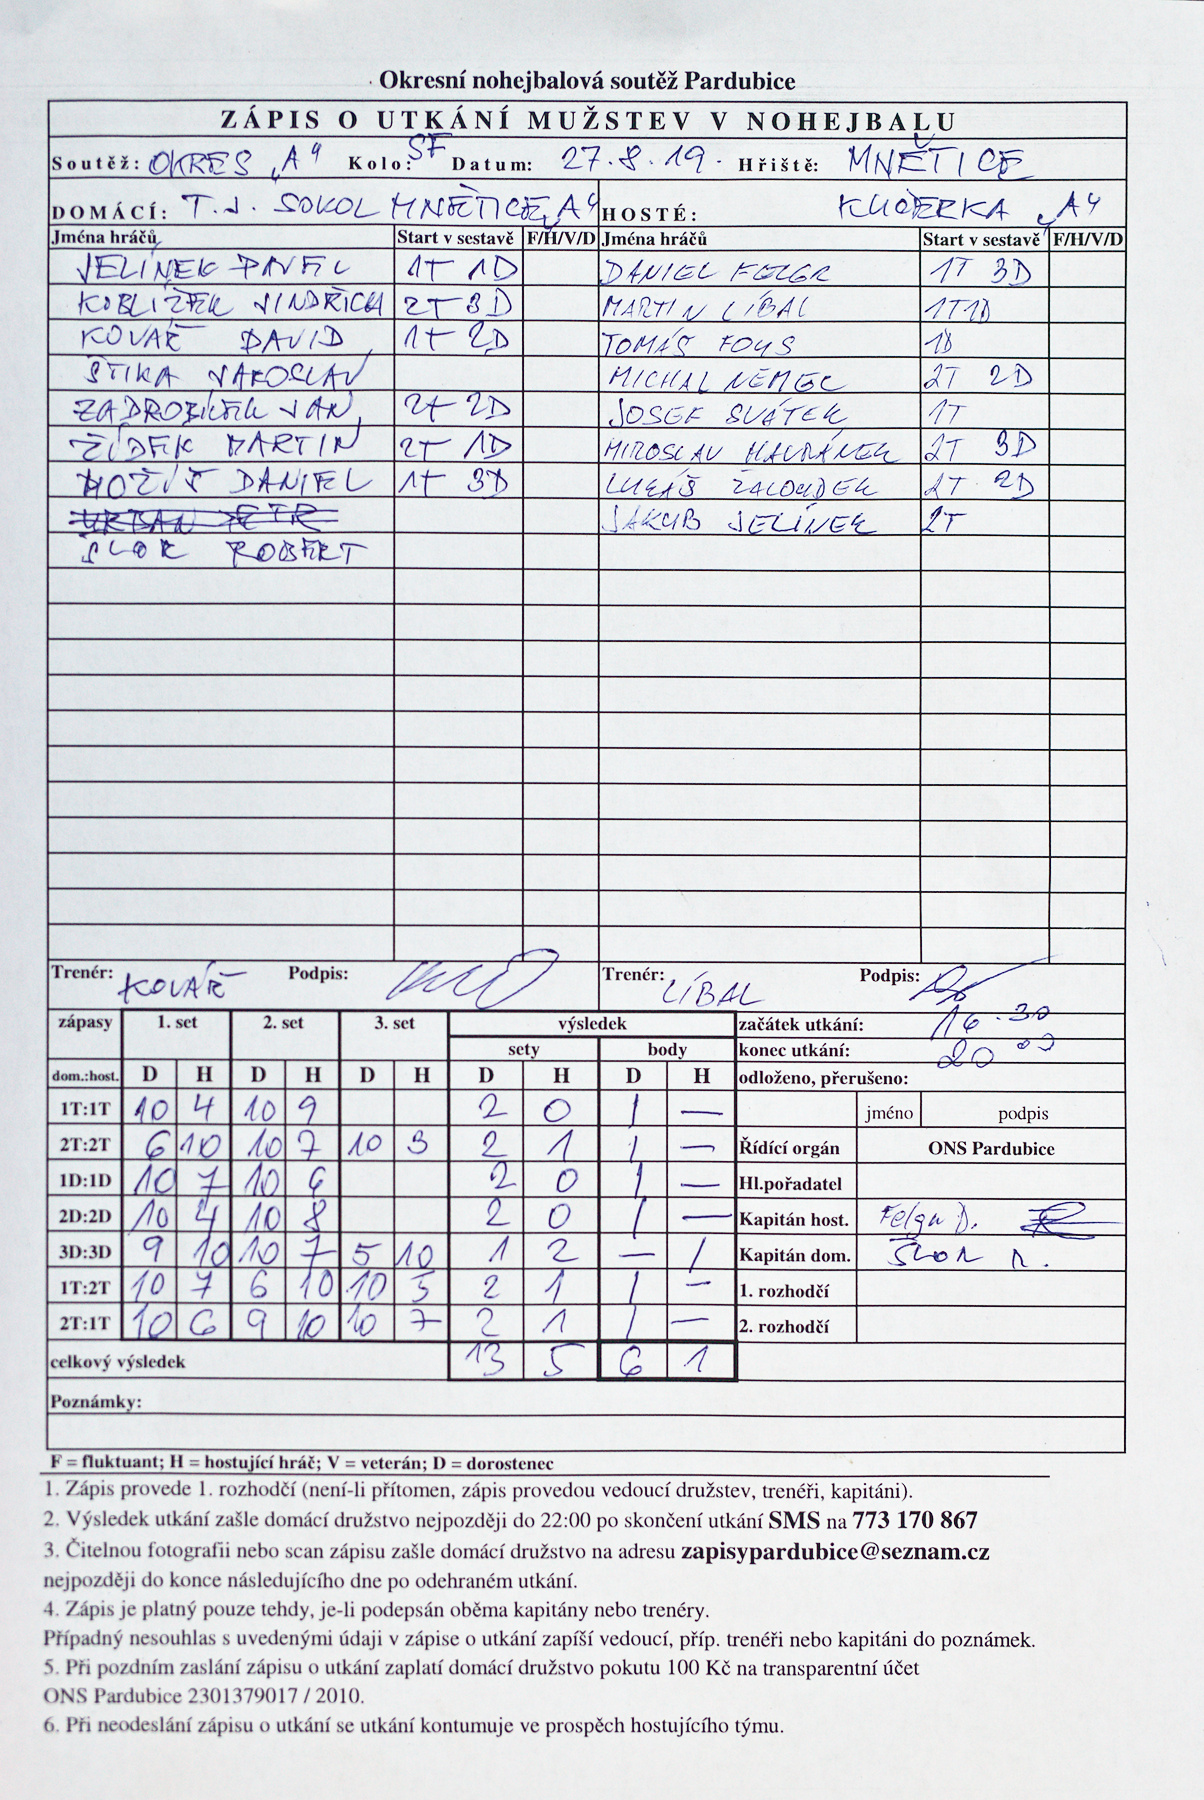 Okresní nohejbalová soutěž Pardubice
ZÁPIS O UTKÁNÍ MUŽSTEV V NOHEJBALU
Soutěž: OKRES „A“ Kolo: SF Datum: 27.8.19. Hřiště: MNĚTICE
DOMÁCÍ: T.J. SOKOL MNĚTICE „A“ HOSTÉ: KUČERKA „A“
Jména hráčů Start v sestavě F/H/V/D Jména hráčů Start v sestavě F/H/V/D
JELÍNEK PAVEL 1T 1D DANIEL FELGR 1T 3D
KOBLÍŽEK JINDŘICH 2T 3D MARTIN LÍBAL 1T 1D
KOVÁŘ DAVID 1T 2D TOMÁŠ 1D
ŠTIKA JAROSLAV MICHAL NĚMEC 2T 2D
JAN 2T 2D JOSEF SVÁTEK 1T
ŽÍDEK MARTIN 2T 1D MIROSLAV HAVRÁNEK 2T 3D
DANIEL 1T 3D LUKÁŠ ŽALOUDEK 2D
JAKUB JELÍNEK 2T
ŠLOR ROBERT
Trenér: KOVÁŘ Podpis: Trenér: LÍBAL Podpis:
zápasy 1. set 2. set 3. set výsledek začátek utkání: 16.30
sety body konec utkání: 20 00
dom.:host. D H D H D H D H D H odloženo, přerušeno:
1T:1T 10 4 10 9 2 0 1 — jméno podpis
2T:2T 6 10 10 7 10 3 2 1 1 — Řídící orgán ONS Pardubice
1D:1D 10 7 10 6 2 0 1 — Hl.pořadatel
2D:2D 10 4 10 8 2 0 1 — Kapitán host. Felgr D.
3D:3D 9 10 10 7 5 10 1 2 — 1 Kapitán dom. Šlor R.
1T:2T 10 7 6 10 10 5 2 1 1 — 1. rozhodčí
2T:1T 10 6 9 10 10 7 2 1 1 — 2. rozhodčí
celkový výsledek 13 5 6 1
Poznámky:
F = fluktuant; H = hostující hráč; V = veterán; D = dorostenec
1. Zápis provede 1. rozhodčí (není-li přítomen, zápis provedou vedoucí družstev, trenéři, kapitáni).
2. Výsledek utkání zašle domácí družstvo nejpozději do 22:00 po skončení utkání SMS na 773 170 867
3. Čitelnou fotografii nebo scan zápisu zašle domácí družstvo na adresu zapisypardubice@seznam.cz
nejpozději do konce následujícího dne po odehraném utkání.
4. Zápis je platný pouze tehdy, je-li podepsán oběma kapitány nebo trenéry.
Případný nesouhlas s uvedenými údaji v zápise o utkání zapíší vedoucí, příp. trenéři nebo kapitáni do poznámek.
5. Při pozdním zaslání zápisu o utkání zaplatí domácí družstvo pokutu 100 Kč na transparentní účet
ONS Pardubice 2301379017 / 2010.
6. Při neodeslání zápisu o utkání se utkání kontumuje ve prospěch hostujícího týmu.